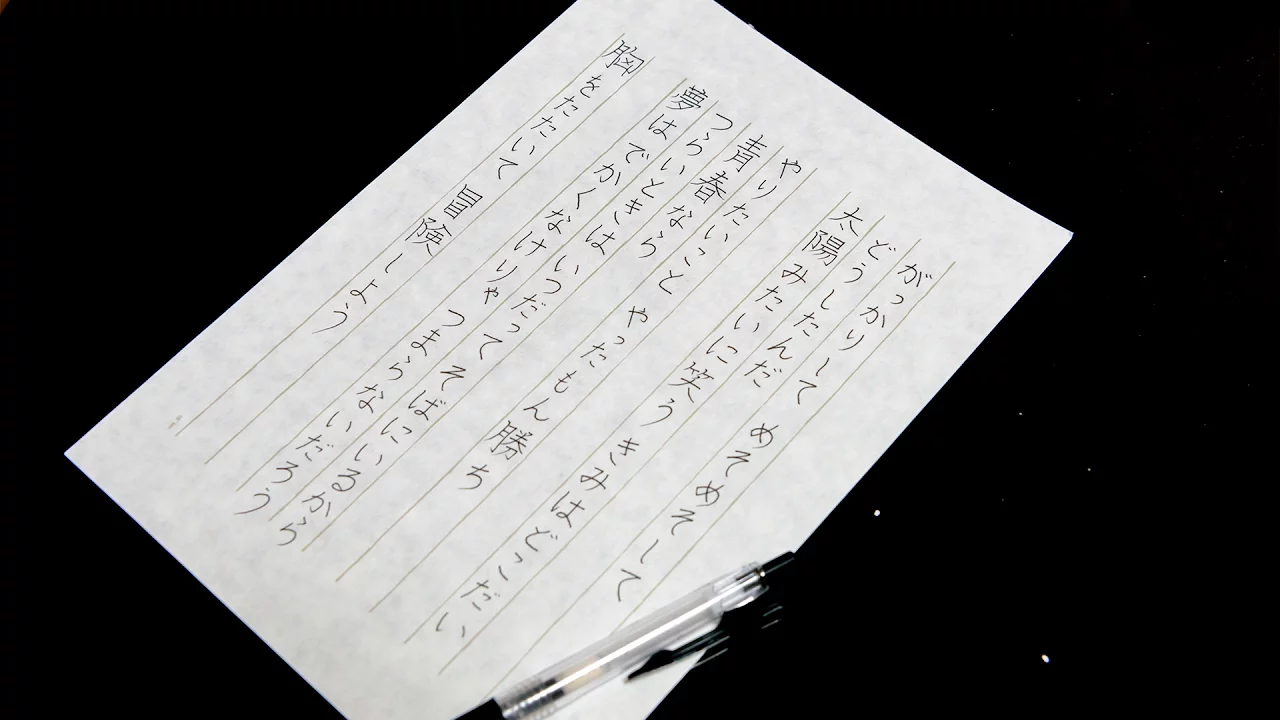 がっかりして めそめそして
どうしたんだ
太陽みたいに笑う きみはどこだい
やりたいこと やったもん勝ち
青春なら
つらいときは いつだって そばにいるから
夢はでかくなけりゃ つまらないだろう
胸をたたいて 冒険しよう